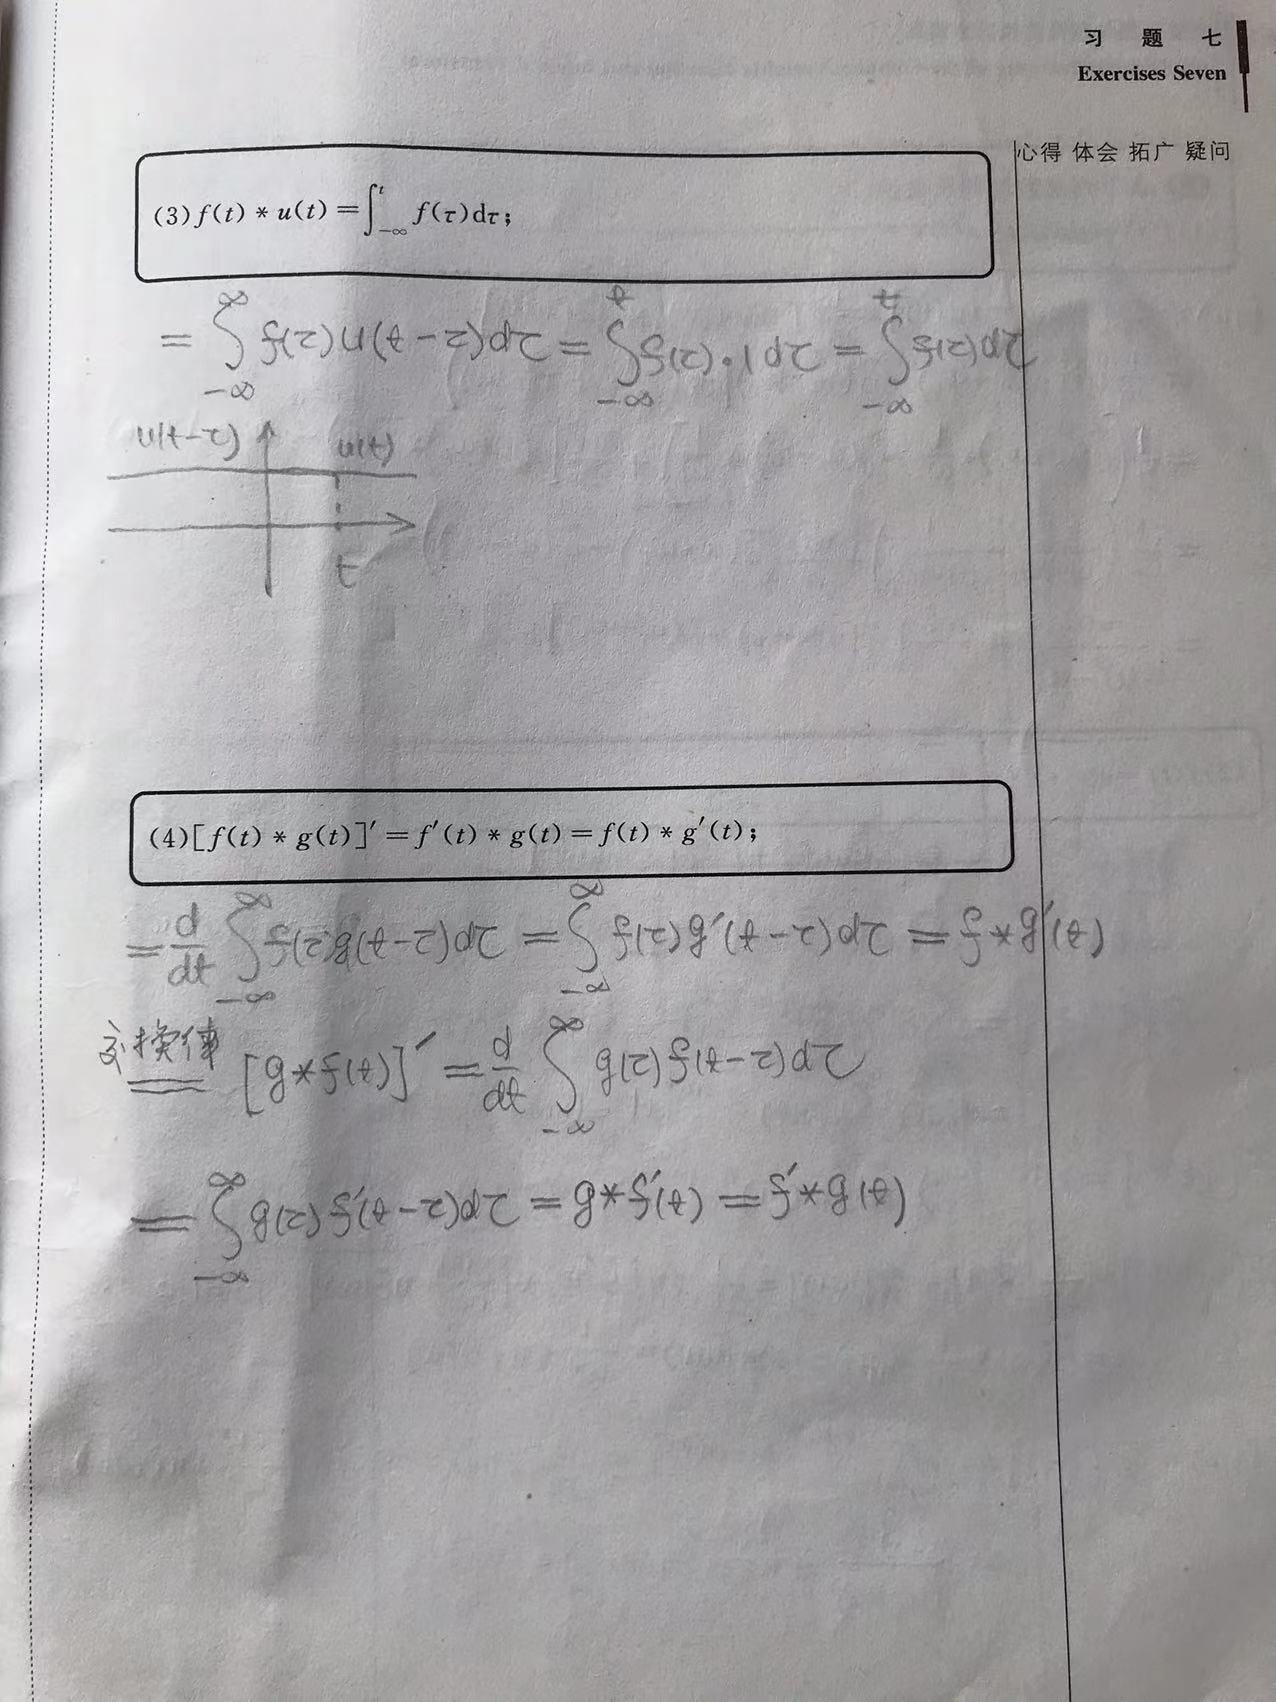 习 题 七
Exercises Seven
心得 体会 拓广 疑问
(3) f(t) * u(t) = ∫_{-∞}^{t} f(τ)dτ;
= ∫_{-∞}^{∞} f(τ)u(t-τ)dτ = ∫_{-∞}^{t} f(τ)·1dτ = ∫_{-∞}^{t} f(τ)dτ
u(t-τ) u(t)
t
(4) [f(t) * g(t)]′ = f′(t) * g(t) = f(t) * g′(t);
= d/dt ∫_{-∞}^{∞} f(τ)g(t-τ)dτ = ∫_{-∞}^{∞} f(τ)g′(t-τ)dτ = f*g′(t)
交换律 = [g*f(t)]′ = d/dt ∫_{-∞}^{∞} g(τ)f(t-τ)dτ
= ∫_{-∞}^{∞} g(τ)f′(t-τ)dτ = g*f′(t) = f′*g(t)